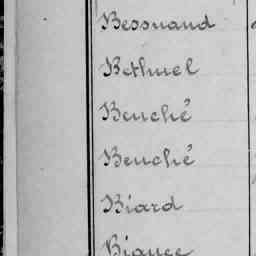 Bessuand
Bethuel
Beuché
Beuché
Biard
Biguee